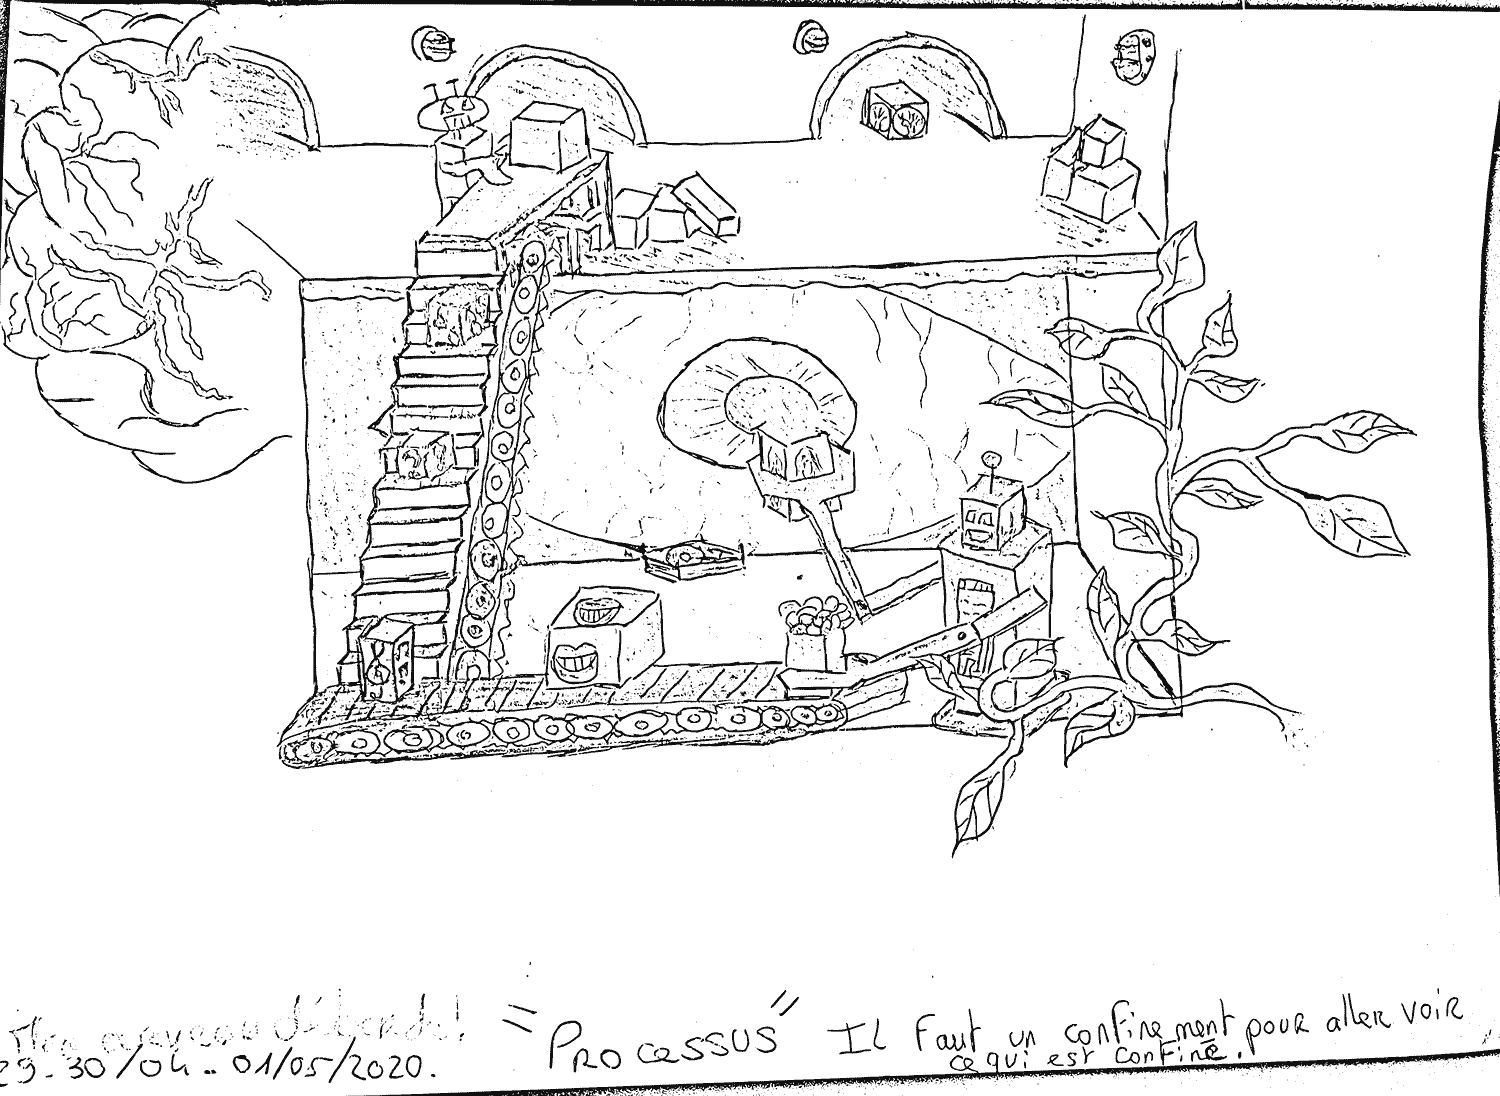 cerveau déborde!
29.30/04..01/05/2020.
"Processus"
Il faut un confinement pour aller voir
ce qui est confiné.